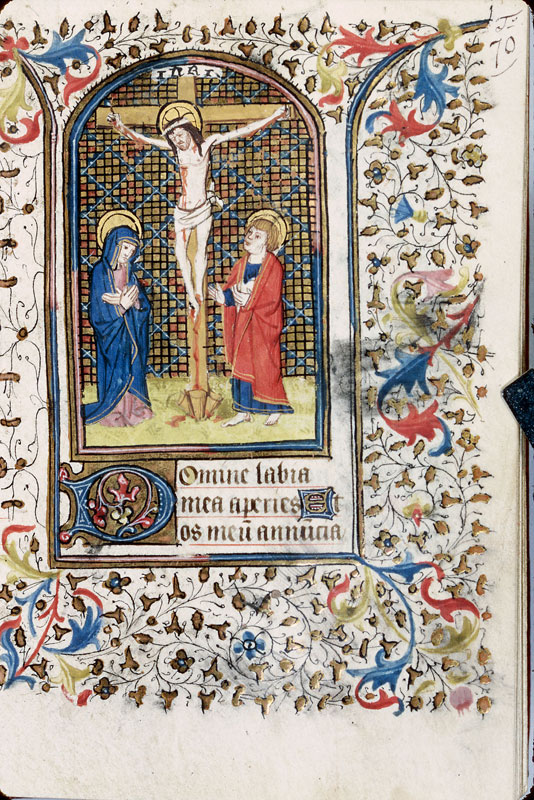 F.
70
INRI
Domine labia
mea aperies Et
os meū annūcia